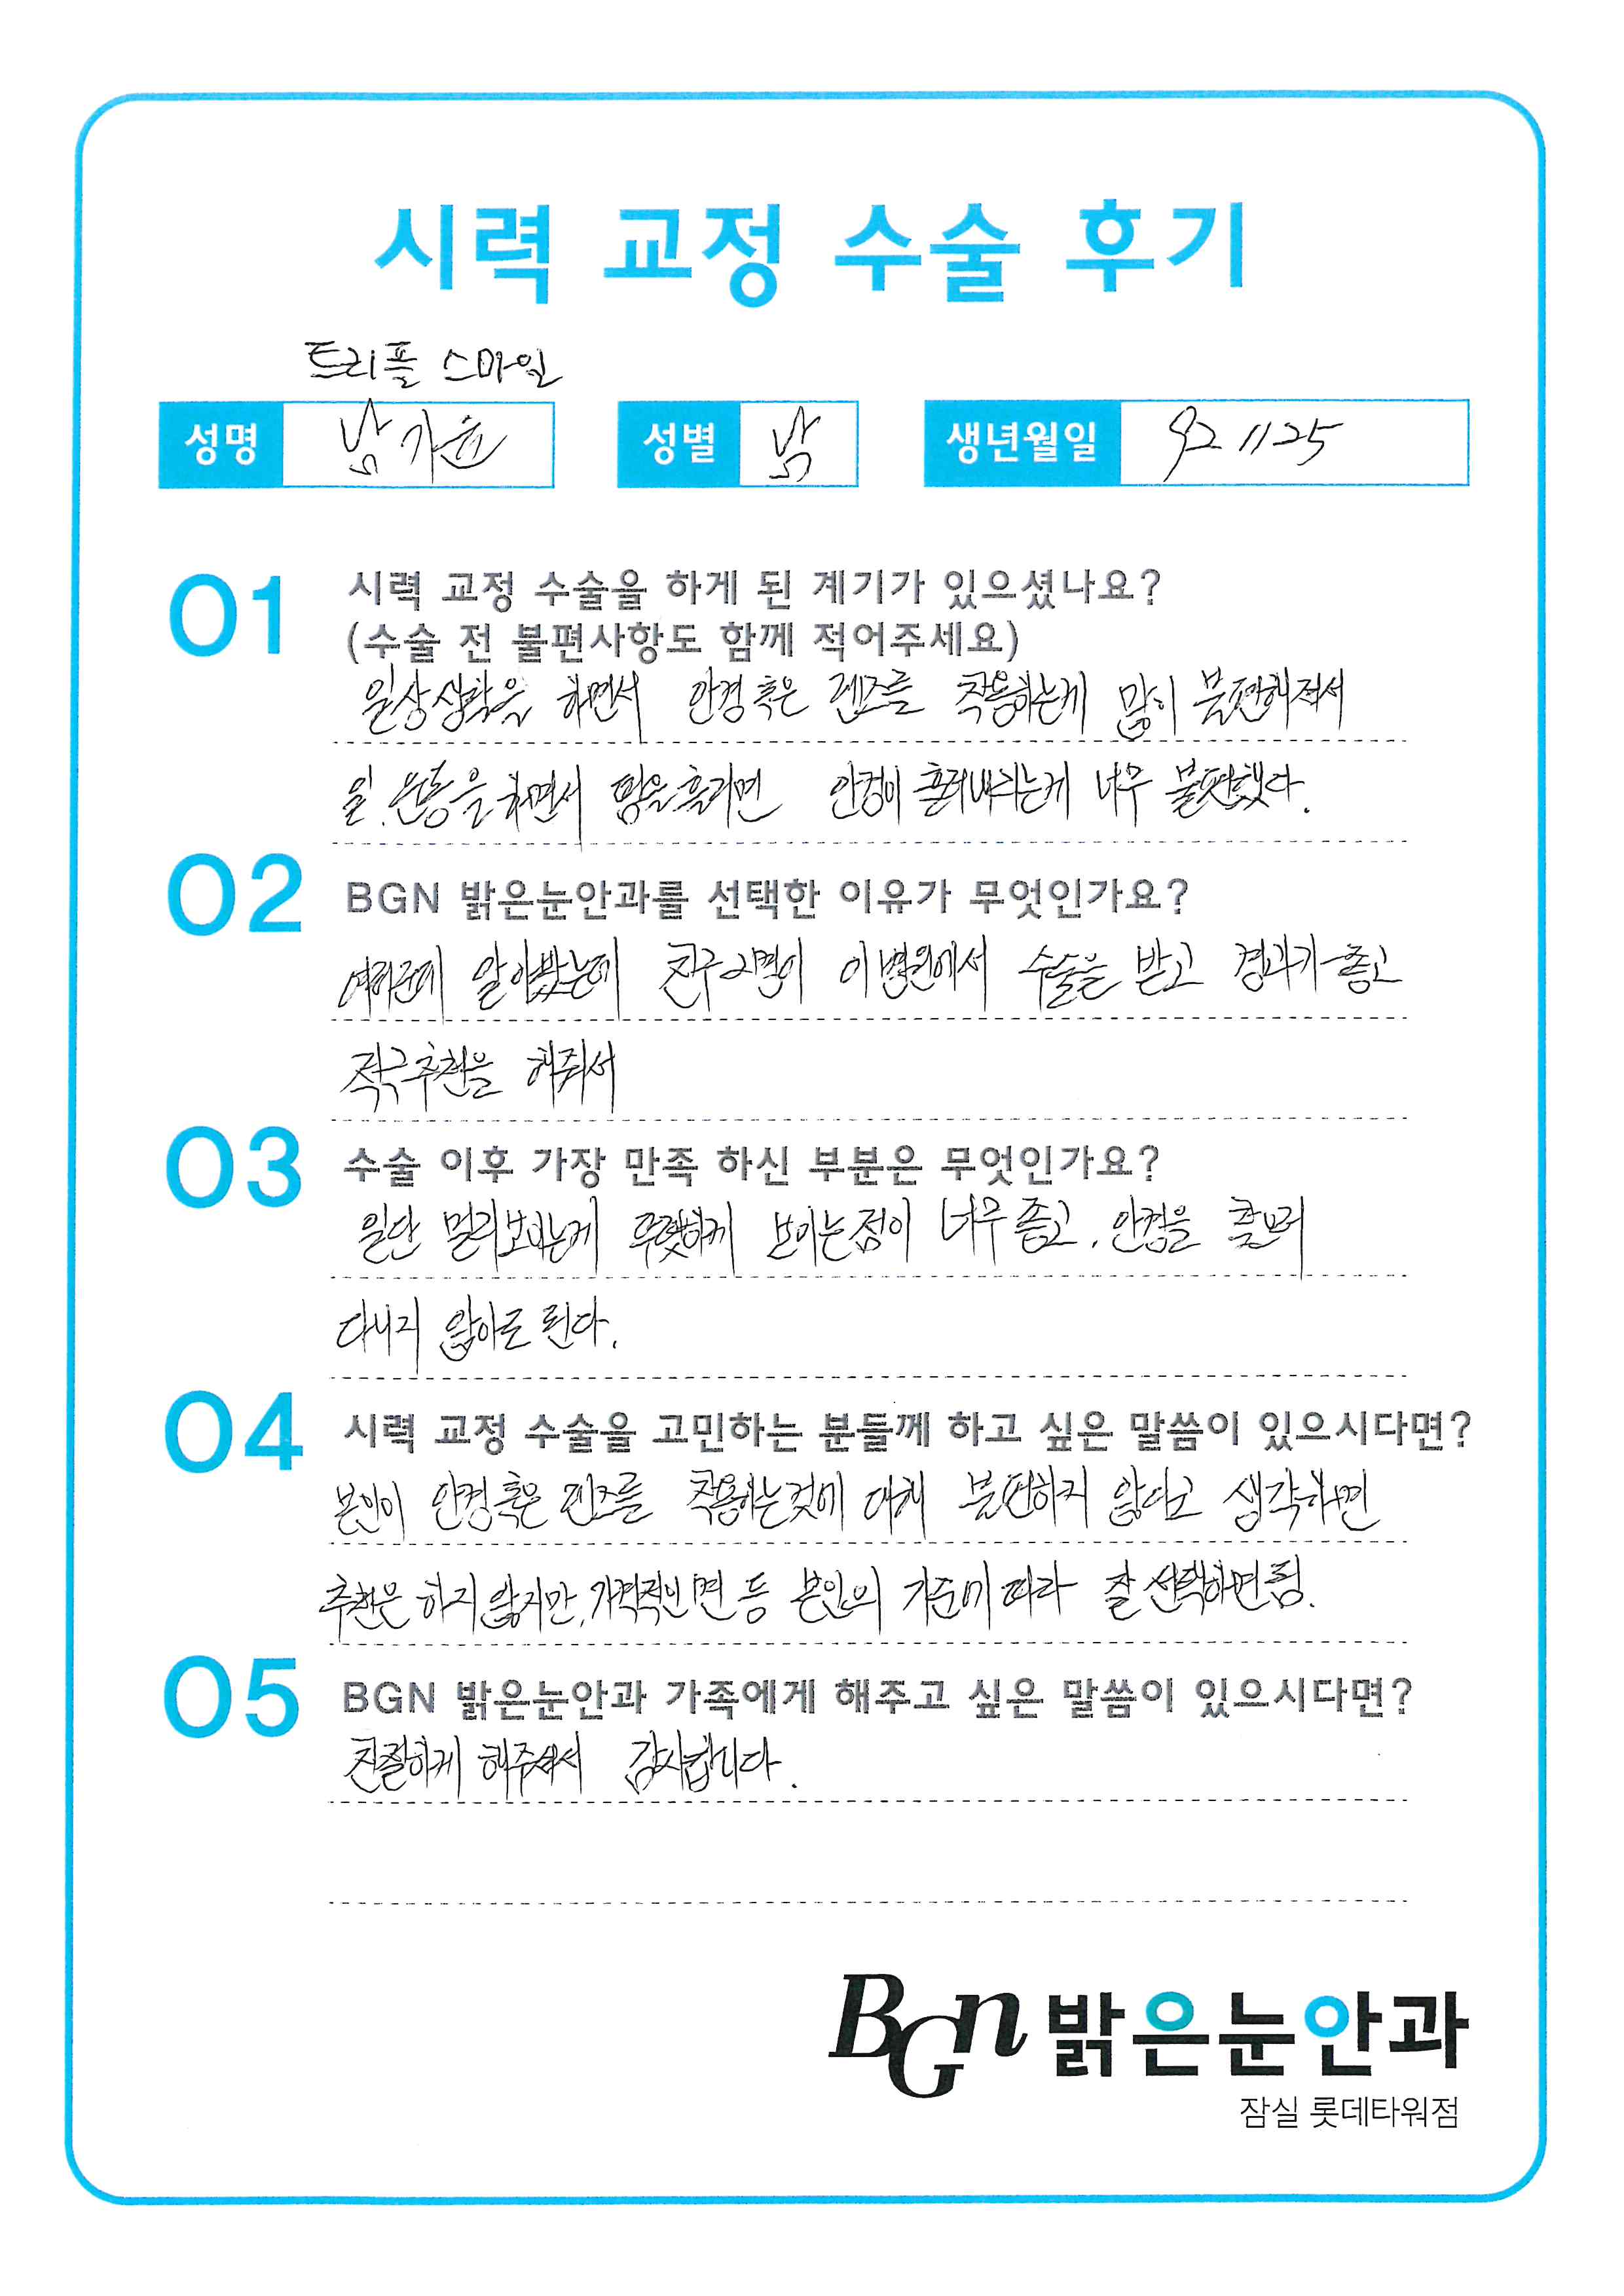 시력 교정 수술 후기
트리플 스마일
성명 남가윤 성별 남 생년월일 921125
01 시력 교정 수술을 하게 된 계기가 있으셨나요?
(수술 전 불편사항도 함께 적어주세요)
일상생활을 하면서 안경 혹은 렌즈를 착용하는게 많이 불편해져서
일.운동을 하면서 땀을 흘리면 안경이 흘러내리는게 너무 불편했다.
02 BGN 밝은눈안과를 선택한 이유가 무엇인가요?
여러군데 알아봤는데 친구2명이 이병원에서 수술을 받고 경과가 좋고
적극추천을 해줘서
03 수술 이후 가장 만족 하신 부분은 무엇인가요?
일단 멀리보이는게 뚜렷하게 보이는점이 너무 좋고, 안경을
다니지 않아도 된다.
04 시력 교정 수술을 고민하는 분들께 하고 싶은 말씀이 있으시다면?
본인이 안경 혹은 렌즈를 착용하는것에 대해 불편하지 않다고 생각하면
추천은 하지 않지만, 가격적인 면 등 본인의 기준에 따라 잘 선택하면 됨.
05 BGN 밝은눈안과 가족에게 해주고 싶은 말씀이 있으시다면?
친절하게 해주셔서 감사합니다.
BGN 밝은눈안과
잠실 롯데타워점